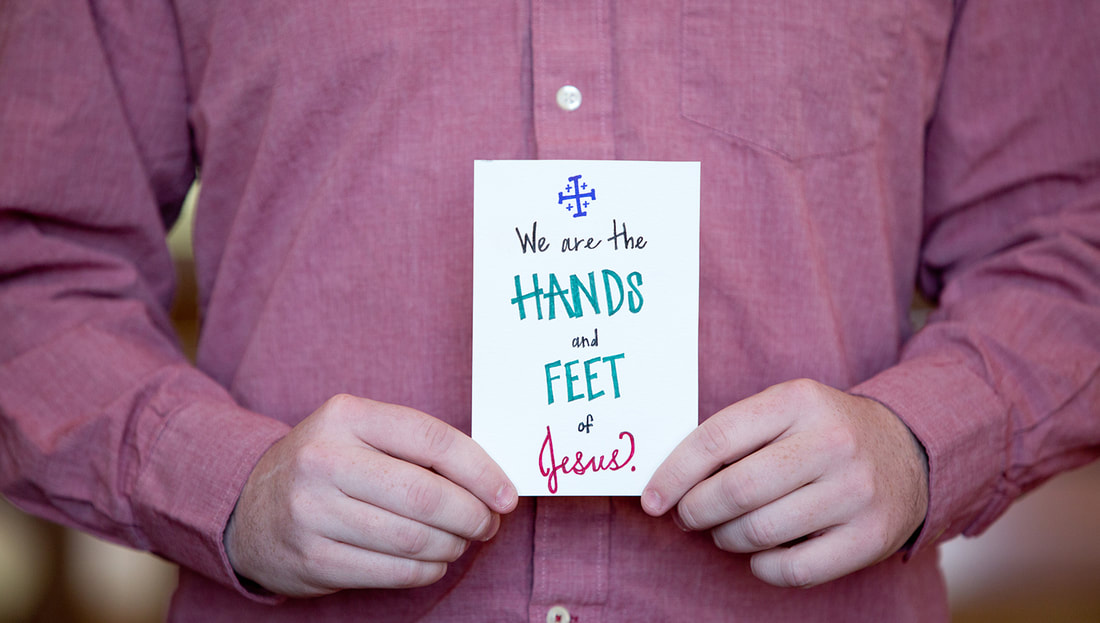 We are the
HANDS
and
FEET
of
Jesus?